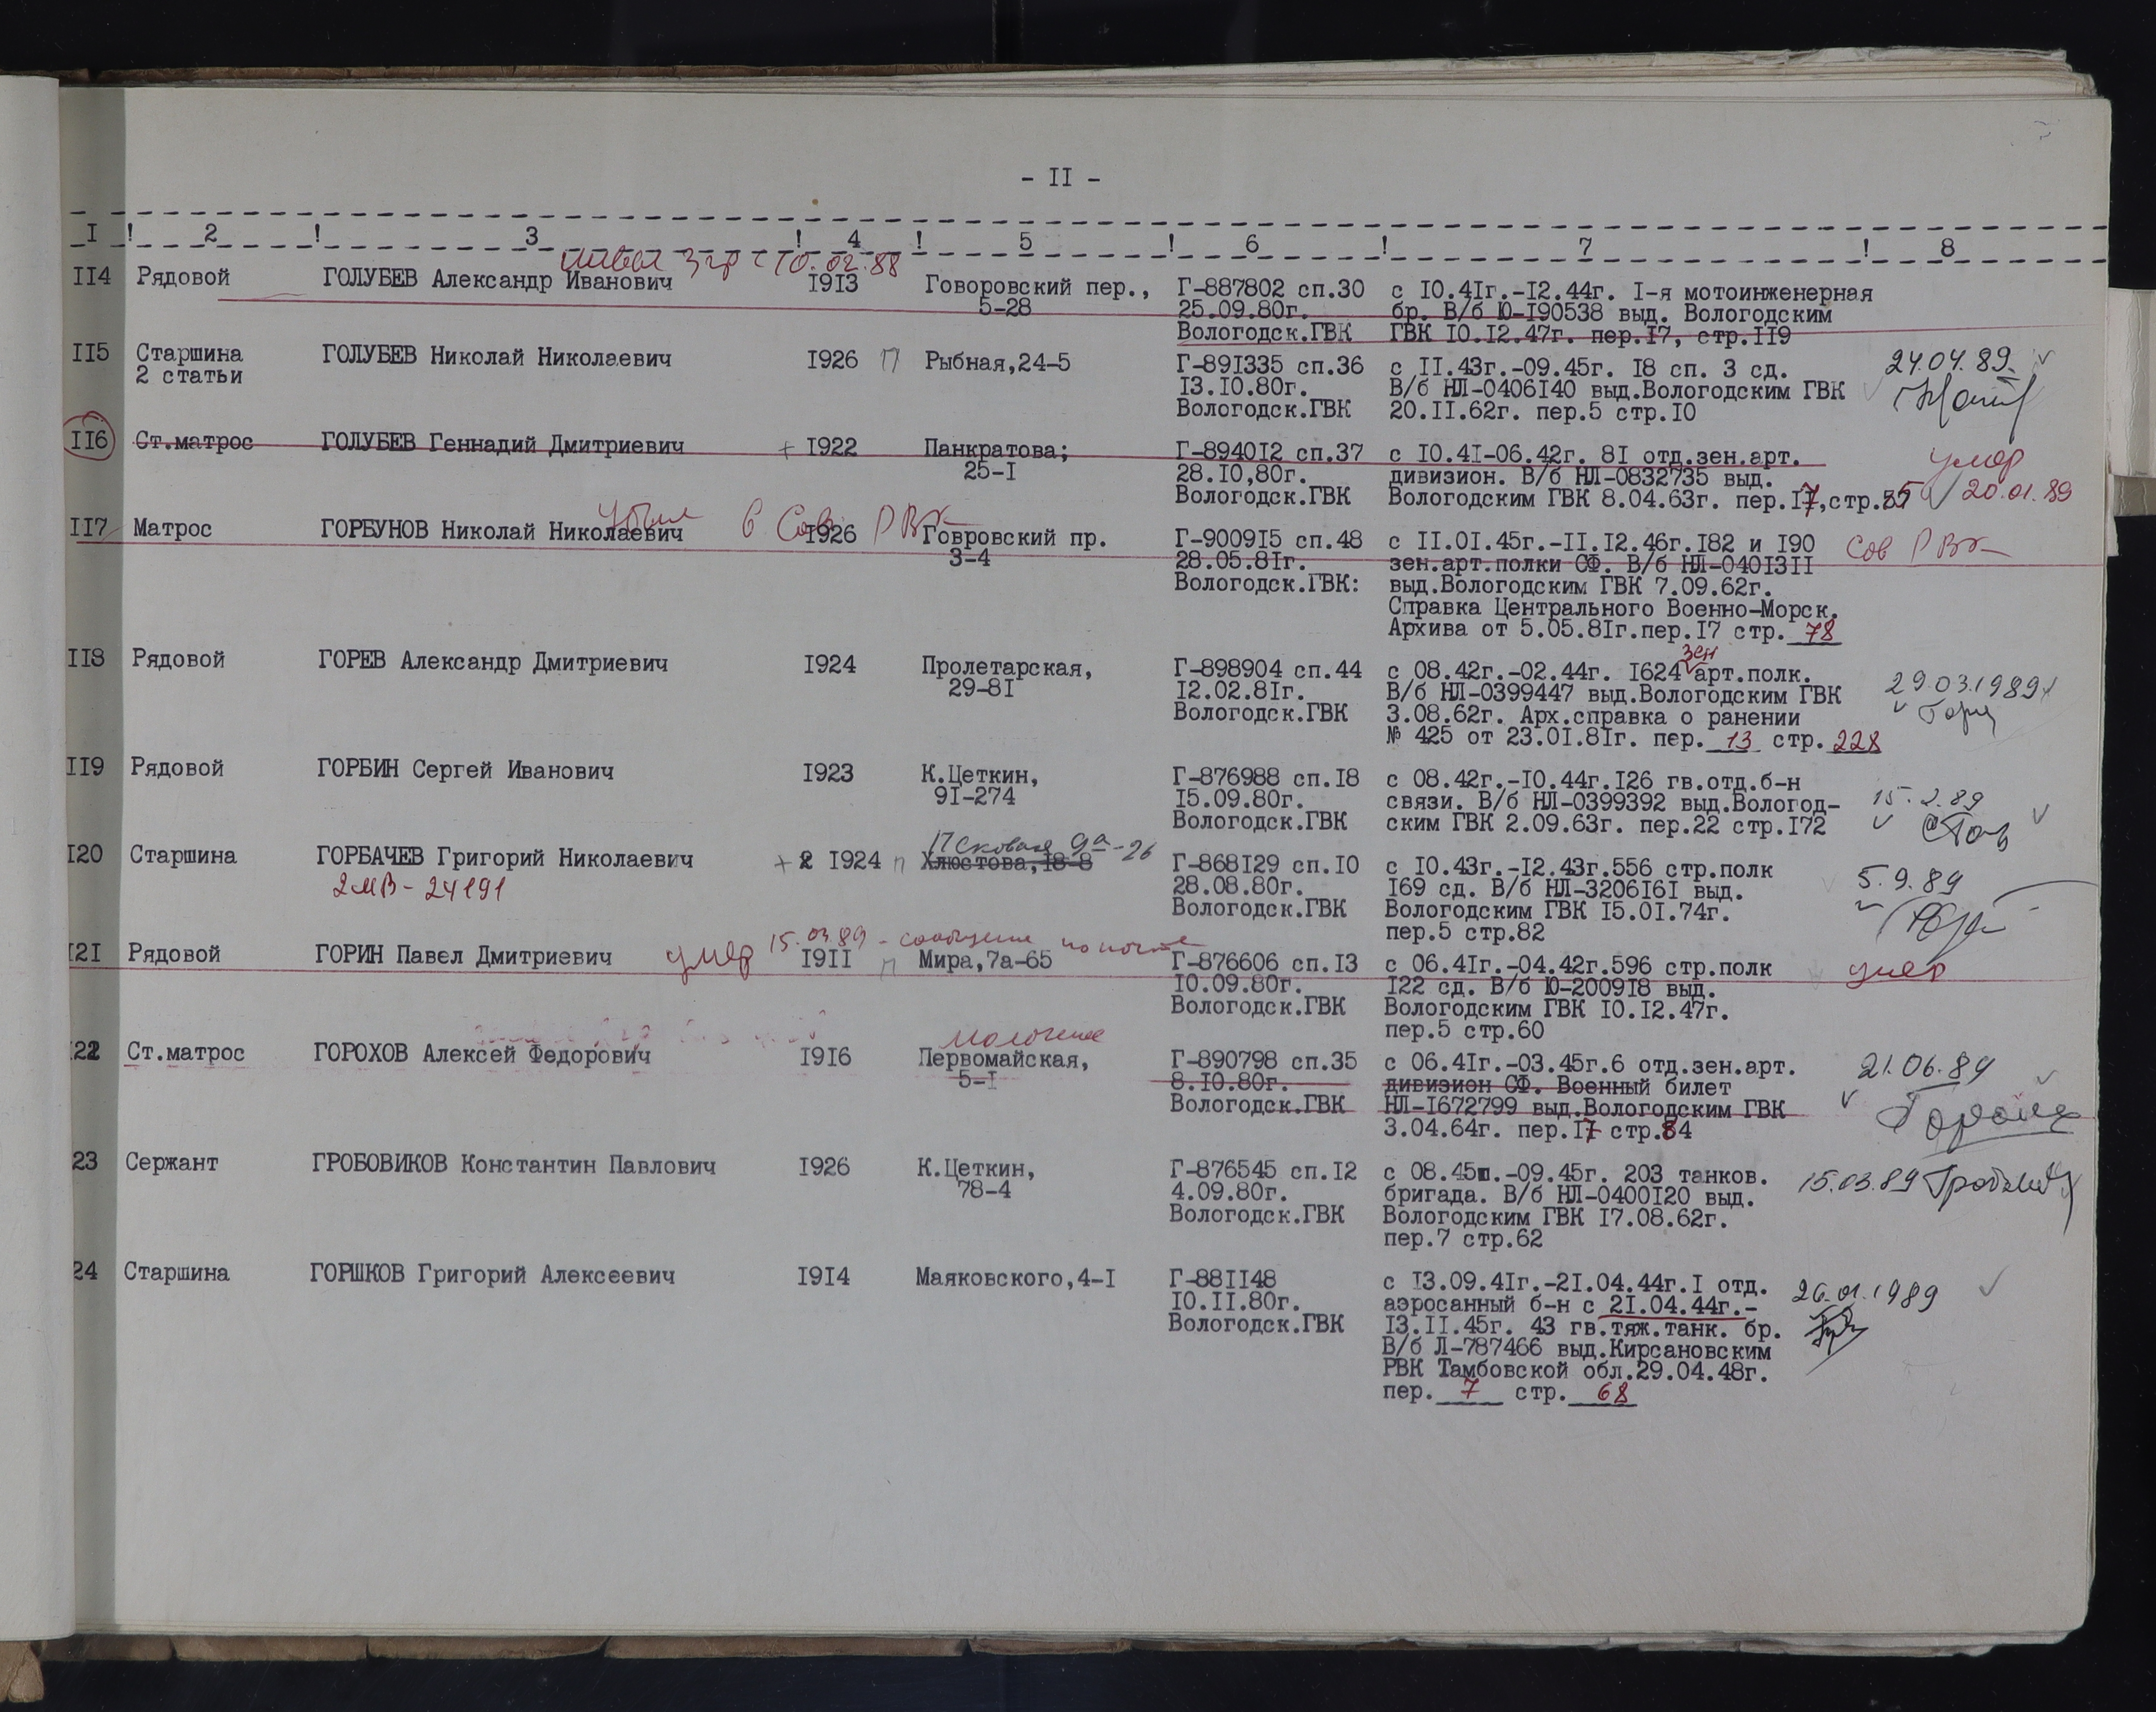 - II -
I ! 2 ! 3 ! 4 ! 5 ! 6 ! 7 ! 8
10.02.88
II4 Рядовой ГОЛУБЕВ Александр Иванович I9I3 Говоровский пер., Г-887802 сп.30 с I0.4Iг.-I2.44г. I-я мотоинженерная
5-28 25.09.80г. бр. В/б Ю-I90538 выд. Вологодским
Вологодск.ГВК ГВК I0.I2.47г. пер.I7, стр.II9
II5 Старшина ГОЛУБЕВ Николай Николаевич I926 П Рыбная,24-5 Г-89I335 сп.36 с II.43г.-09.45г. I8 сп. 3 сд. 24.04.89.
2 статьи I3.I0.80г. В/б НЛ-0406I40 выд.Вологодским ГВК
Вологодск.ГВК 20.II.62г. пер.5 стр.I0
II6 Ст.матрос ГОЛУБЕВ Геннадий Дмитриевич + I922 Панкратова; Г-8940I2 сп.37 с I0.4I-06.42г. 8I отд.зен.арт. умер
25-I 28.I0,80г. дивизион. В/б НЛ-0832735 выд.
Вологодск.ГВК Вологодским ГВК 8.04.63г. пер.I7,стр. 20.01.89
убыл в Сов РВК
II7 Матрос ГОРБУНОВ Николай Николаевич I926 Говровский пр. Г-9009I5 сп.48 с II.0I.45г.-II.I2.46г.I82 и I90 Сов РВК
3-4 28.05.8Iг. зен.арт.полки СФ. В/б НЛ-040I3II
Вологодск.ГВК: выд.Вологодским ГВК 7.09.62г.
Справка Центрального Военно-Морск.
Архива от 5.05.8Iг.пер.I7 стр. 78
зен
II8 Рядовой ГОРЕВ Александр Дмитриевич I924 Пролетарская, Г-898904 сп.44 с 08.42г.-02.44г. I624 арт.полк. 29.03.1989
29-8I I2.02.8Iг. В/б НЛ-0399447 выд.Вологодским ГВК
Вологодск.ГВК 3.08.62г. Арх.справка о ранении
№ 425 от 23.0I.8Iг. пер. 13 стр. 228
II9 Рядовой ГОРБИН Сергей Иванович I923 К.Цеткин, Г-876988 сп.I8 с 08.42г.-I0.44г.I26 гв.отд.б-н
9I-274 I5.09.80г. связи. В/б НЛ-0399392 выд.Вологод- 15.2.89
Вологодск.ГВК ским ГВК 2.09.63г. пер.22 стр.I72
Псковская 9а-26
I20 Старшина ГОРБАЧЕВ Григорий Николаевич + 2 I924 п Хлюстова,I8-8 Г-868I29 сп.I0 с I0.43г.-I2.43г.556 стр.полк 5.9.89
2МВ-24191 28.08.80г. I69 сд. В/б НЛ-3206I6I выд.
Вологодск.ГВК Вологодским ГВК I5.0I.74г.
пер.5 стр.82
умер 15.03.89 - сообщение по почте
I2I Рядовой ГОРИН Павел Дмитриевич I9II п Мира,7а-65 Г-876606 сп.I3 с 06.4Iг.-04.42г.596 стр.полк умер
I0.09.80г. I22 сд. В/б Ю-2009I8 выд.
Вологодск.ГВК Вологодским ГВК I0.I2.47г.
пер.5 стр.60
Молочное
I22 Ст.матрос ГОРОХОВ Алексей Федорович I9I6 Первомайская, Г-890798 сп.35 с 06.4Iг.-03.45г.6 отд.зен.арт. 21.06.89
5-I 8.I0.80г. дивизион СФ. Военный билет
Вологодск.ГВК НЛ-I672799 выд.Вологодским ГВК
3.04.64г. пер.I7 стр.84
23 Сержант ГРОБОВИКОВ Константин Павлович I926 К.Цеткин, Г-876545 сп.I2 с 08.45ш.-09.45г. 203 танков. 15.03.89
78-4 4.09.80г. бригада. В/б НЛ-0400I20 выд.
Вологодск.ГВК Вологодским ГВК I7.08.62г.
пер.7 стр.62
24 Старшина ГОРШКОВ Григорий Алексеевич I9I4 Маяковского,4-I Г-88II48 с I3.09.4Iг.-2I.04.44г.I отд. 26.01.1989
I0.II.80г. аэросанный б-н с 2I.04.44г.-
Вологодск.ГВК I3.II.45г. 43 гв.тяж.танк. бр.
В/б Л-787466 выд.Кирсановским
РВК Тамбовской обл.29.04.48г.
пер. 7 стр. 68